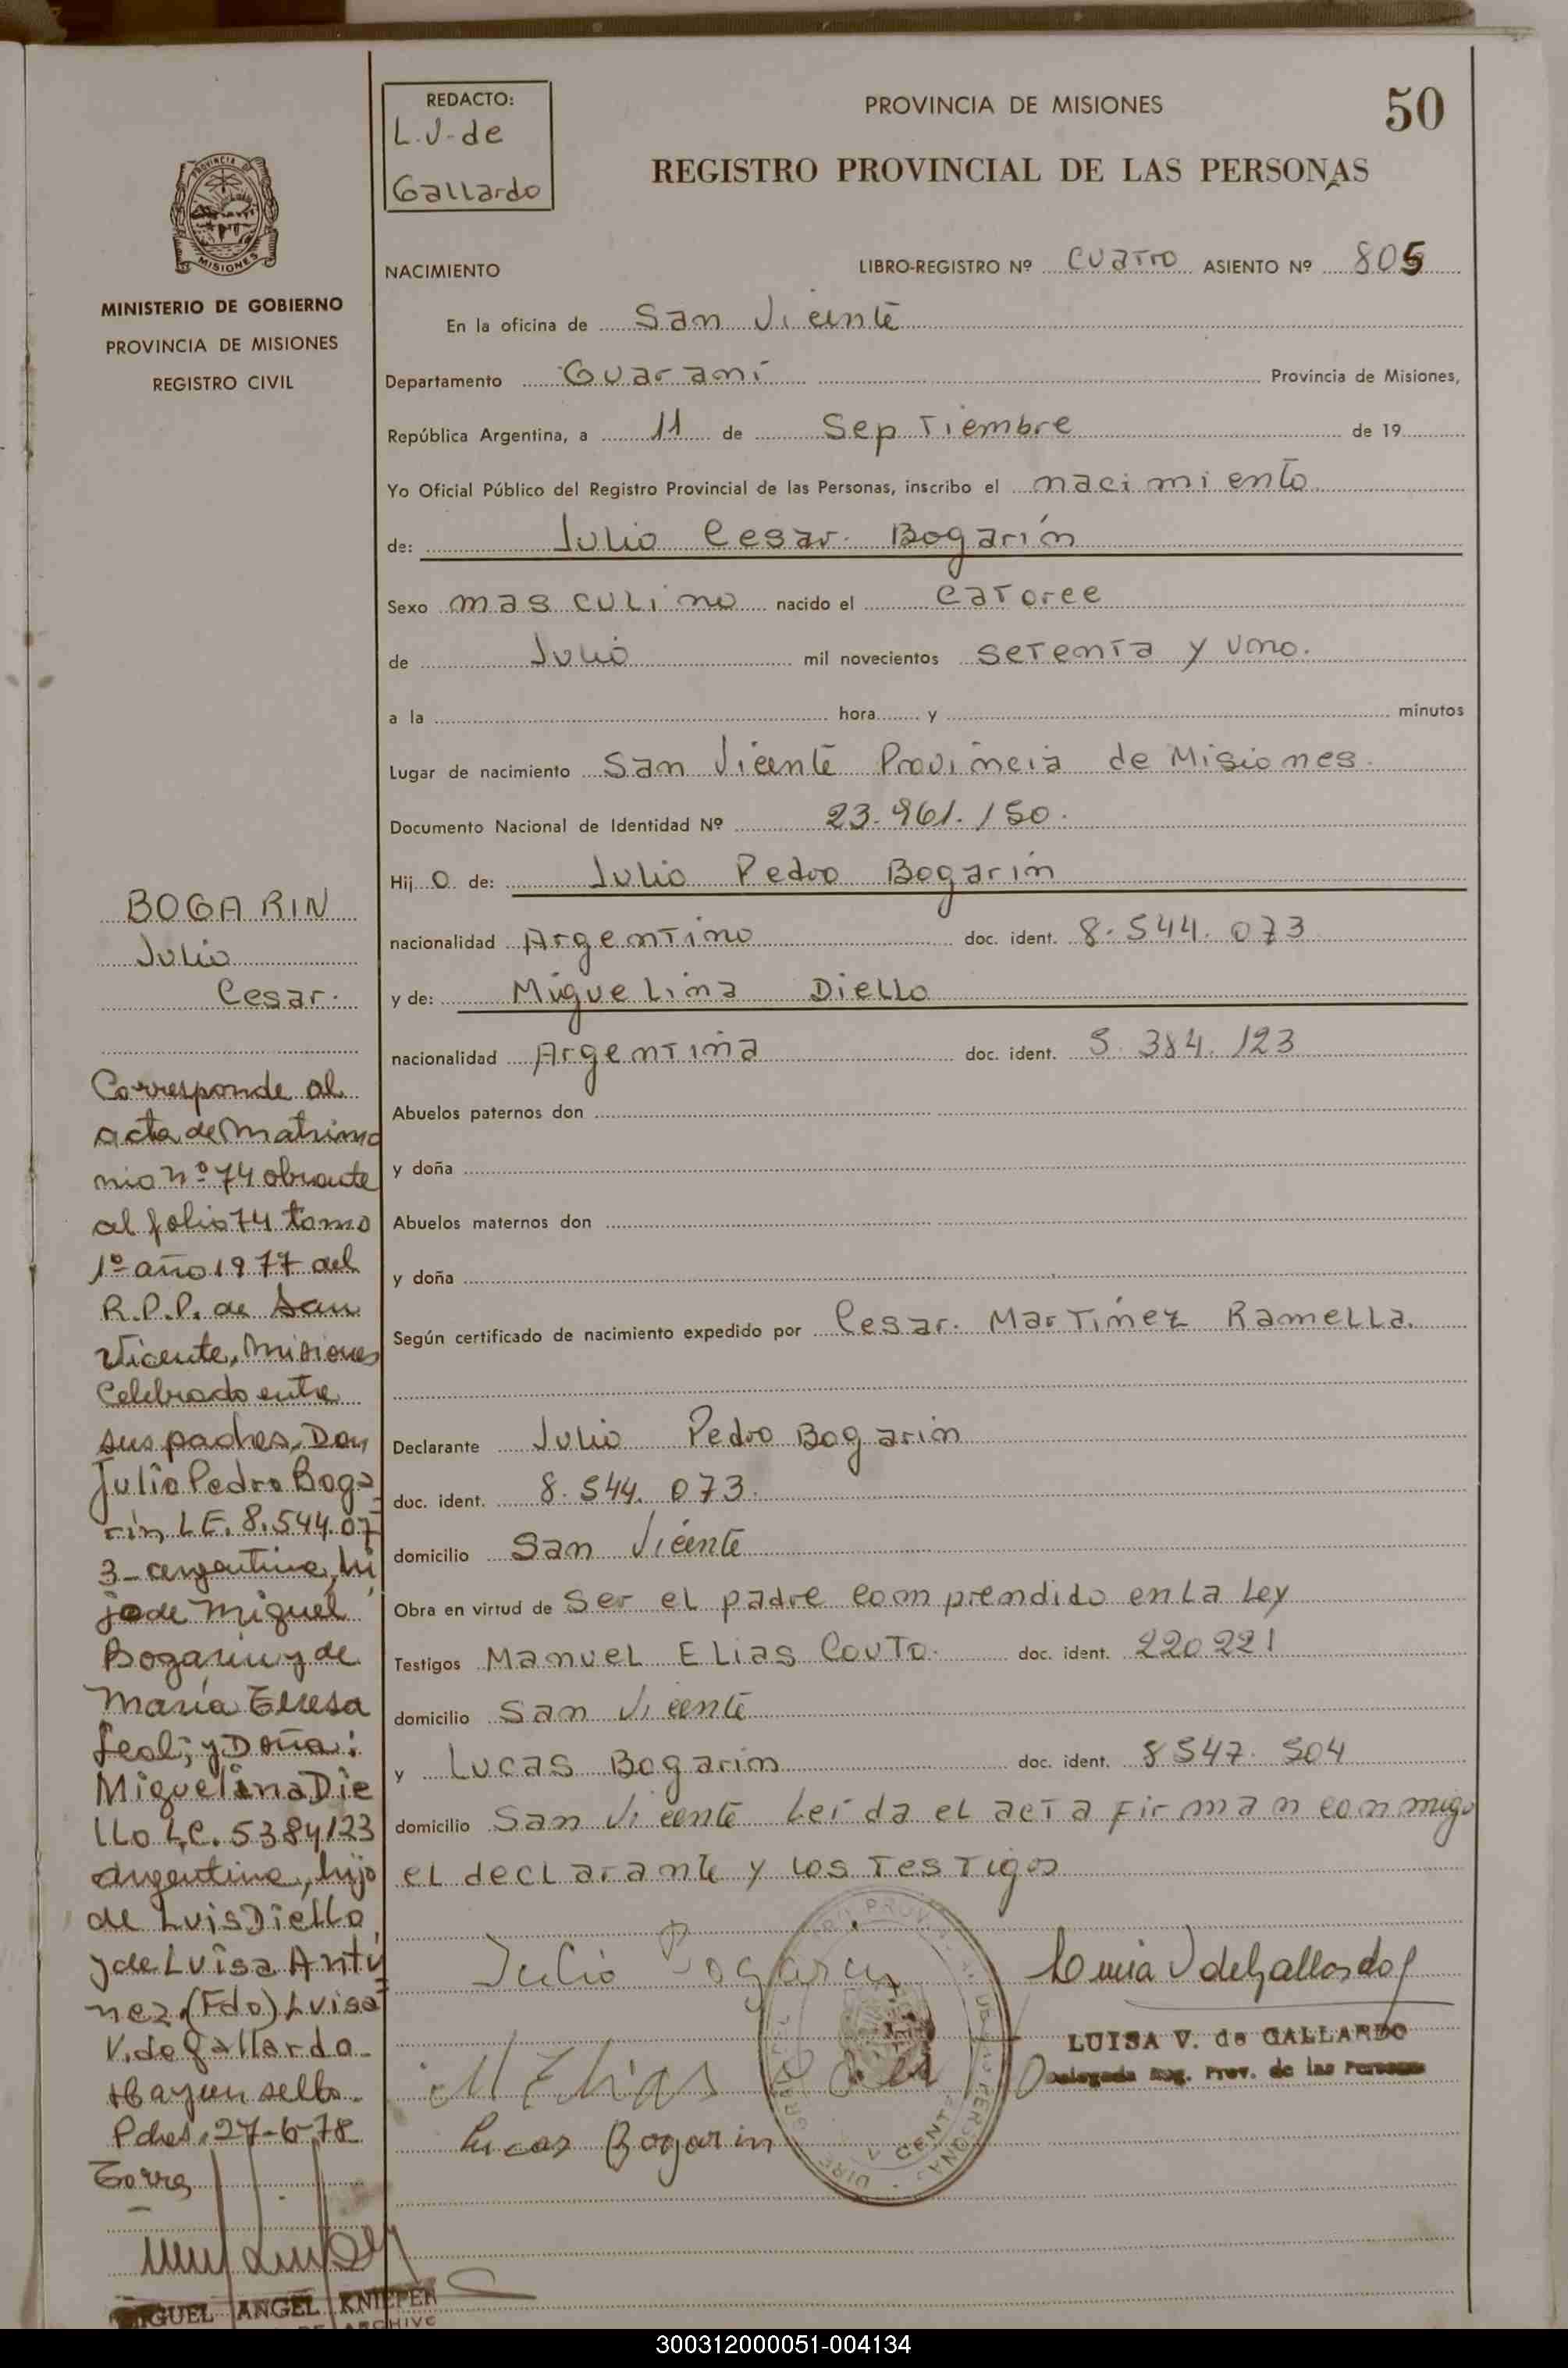 REDACTO:
L.V. de
Gallardo
PROVINCIA DE MISIONES
50
REGISTRO PROVINCIAL DE LAS PERSONAS
PROVINCIA DE
MISIONES
MINISTERIO DE GOBIERNO
PROVINCIA DE MISIONES
REGISTRO CIVIL
NACIMIENTO LIBRO-REGISTRO Nº cuatro ASIENTO Nº 805
En la oficina de San Vicente
Departamento Guaraní Provincia de Misiones,
República Argentina, a 11 de Septiembre de 19
Yo Oficial Público del Registro Provincial de las Personas, inscribo el nacimiento
de: Julio Cesar Bogarín
Sexo masculino nacido el catorce
de Julio mil novecientos setenta y uno.
a la hora y minutos
Lugar de nacimiento San Vicente Provincia de Misiones.
Documento Nacional de Identidad Nº 23.961.150.
Hij o de: Julio Pedro Bogarín
nacionalidad Argentino doc. ident. 8.544.073
y de: Miguelina Diello
nacionalidad Argentina doc. ident. 5.384.123
Abuelos paternos don
y doña
Abuelos maternos don
y doña
Según certificado de nacimiento expedido por Cesar Martínez Ramella.
Declarante Julio Pedro Bogarín
doc. ident. 8.544.073.
domicilio San Vicente
Obra en virtud de ser el padre comprendido en la Ley
Testigos Manuel Elias Couto. doc. ident. 220221
domicilio San Vicente
y Lucas Bogarin doc. ident. 8547.504
domicilio San Vicente Leída el acta firman conmigo
el declarante y los testigos
Julio Bogarin
Luisa V de Gallardo
LUISA V. de GALLARDO
Delegada Reg. Prov. de las Personas
M Elias
Lucas Bogarin
BOGARIN
Julio
Cesar.
Corresponde al
acta de Matrimo
nio nº 74 obrante
al folio 74 tomo
1º año 1977 del
R.P.P. de San
Vicente, Misiones
Celebrado entre
sus padres, Don
Julio Pedro Boga
rin L.E. 8.544.07
3- argentino, hi
jo de Miguel
Bogarin y de
María Teresa
Leal; y Doña:
Miguelina Die
llo L.C. 5384123
argentina, hija
de Luis Diello
y de Luisa Antú
nez. (Fdo) Luisa
V. de Gallardo-
Hay un sello-
Pdas. 27-6-78
Torres
MIGUEL ANGEL KNIEPER
DE ARCHIVO
300312000051-004134